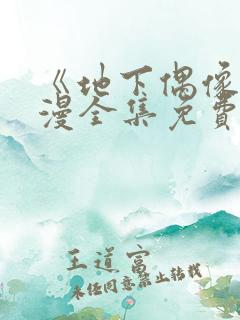 《地下偶像
漫全集免费
王道富
未经同意禁止转载